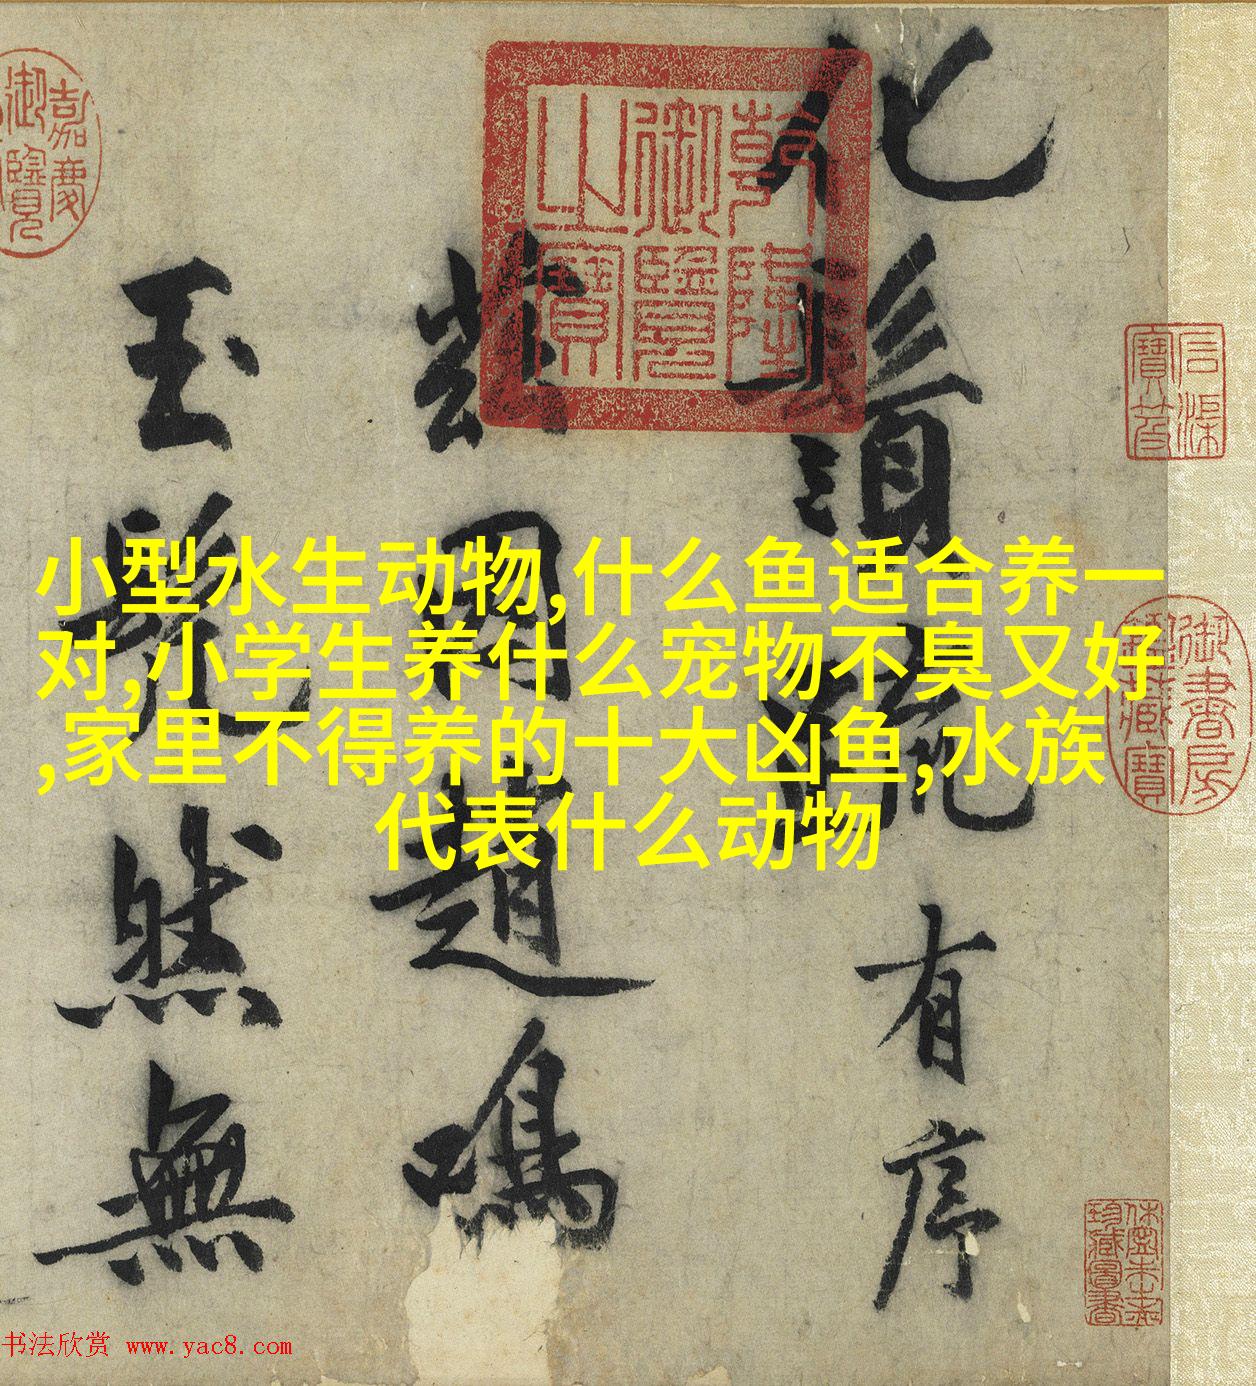 小型水生动物,什么鱼适合养一
对,小学生养什么宠物不臭又好
,家里不得养的十大凶鱼,水族
代表什么动物
有序
玉
然無
嘉慶
御覽
乾隆
御覽
之寶
石渠
寶笈
御書房
鑒藏寶
书法欣赏 www.yac8.com